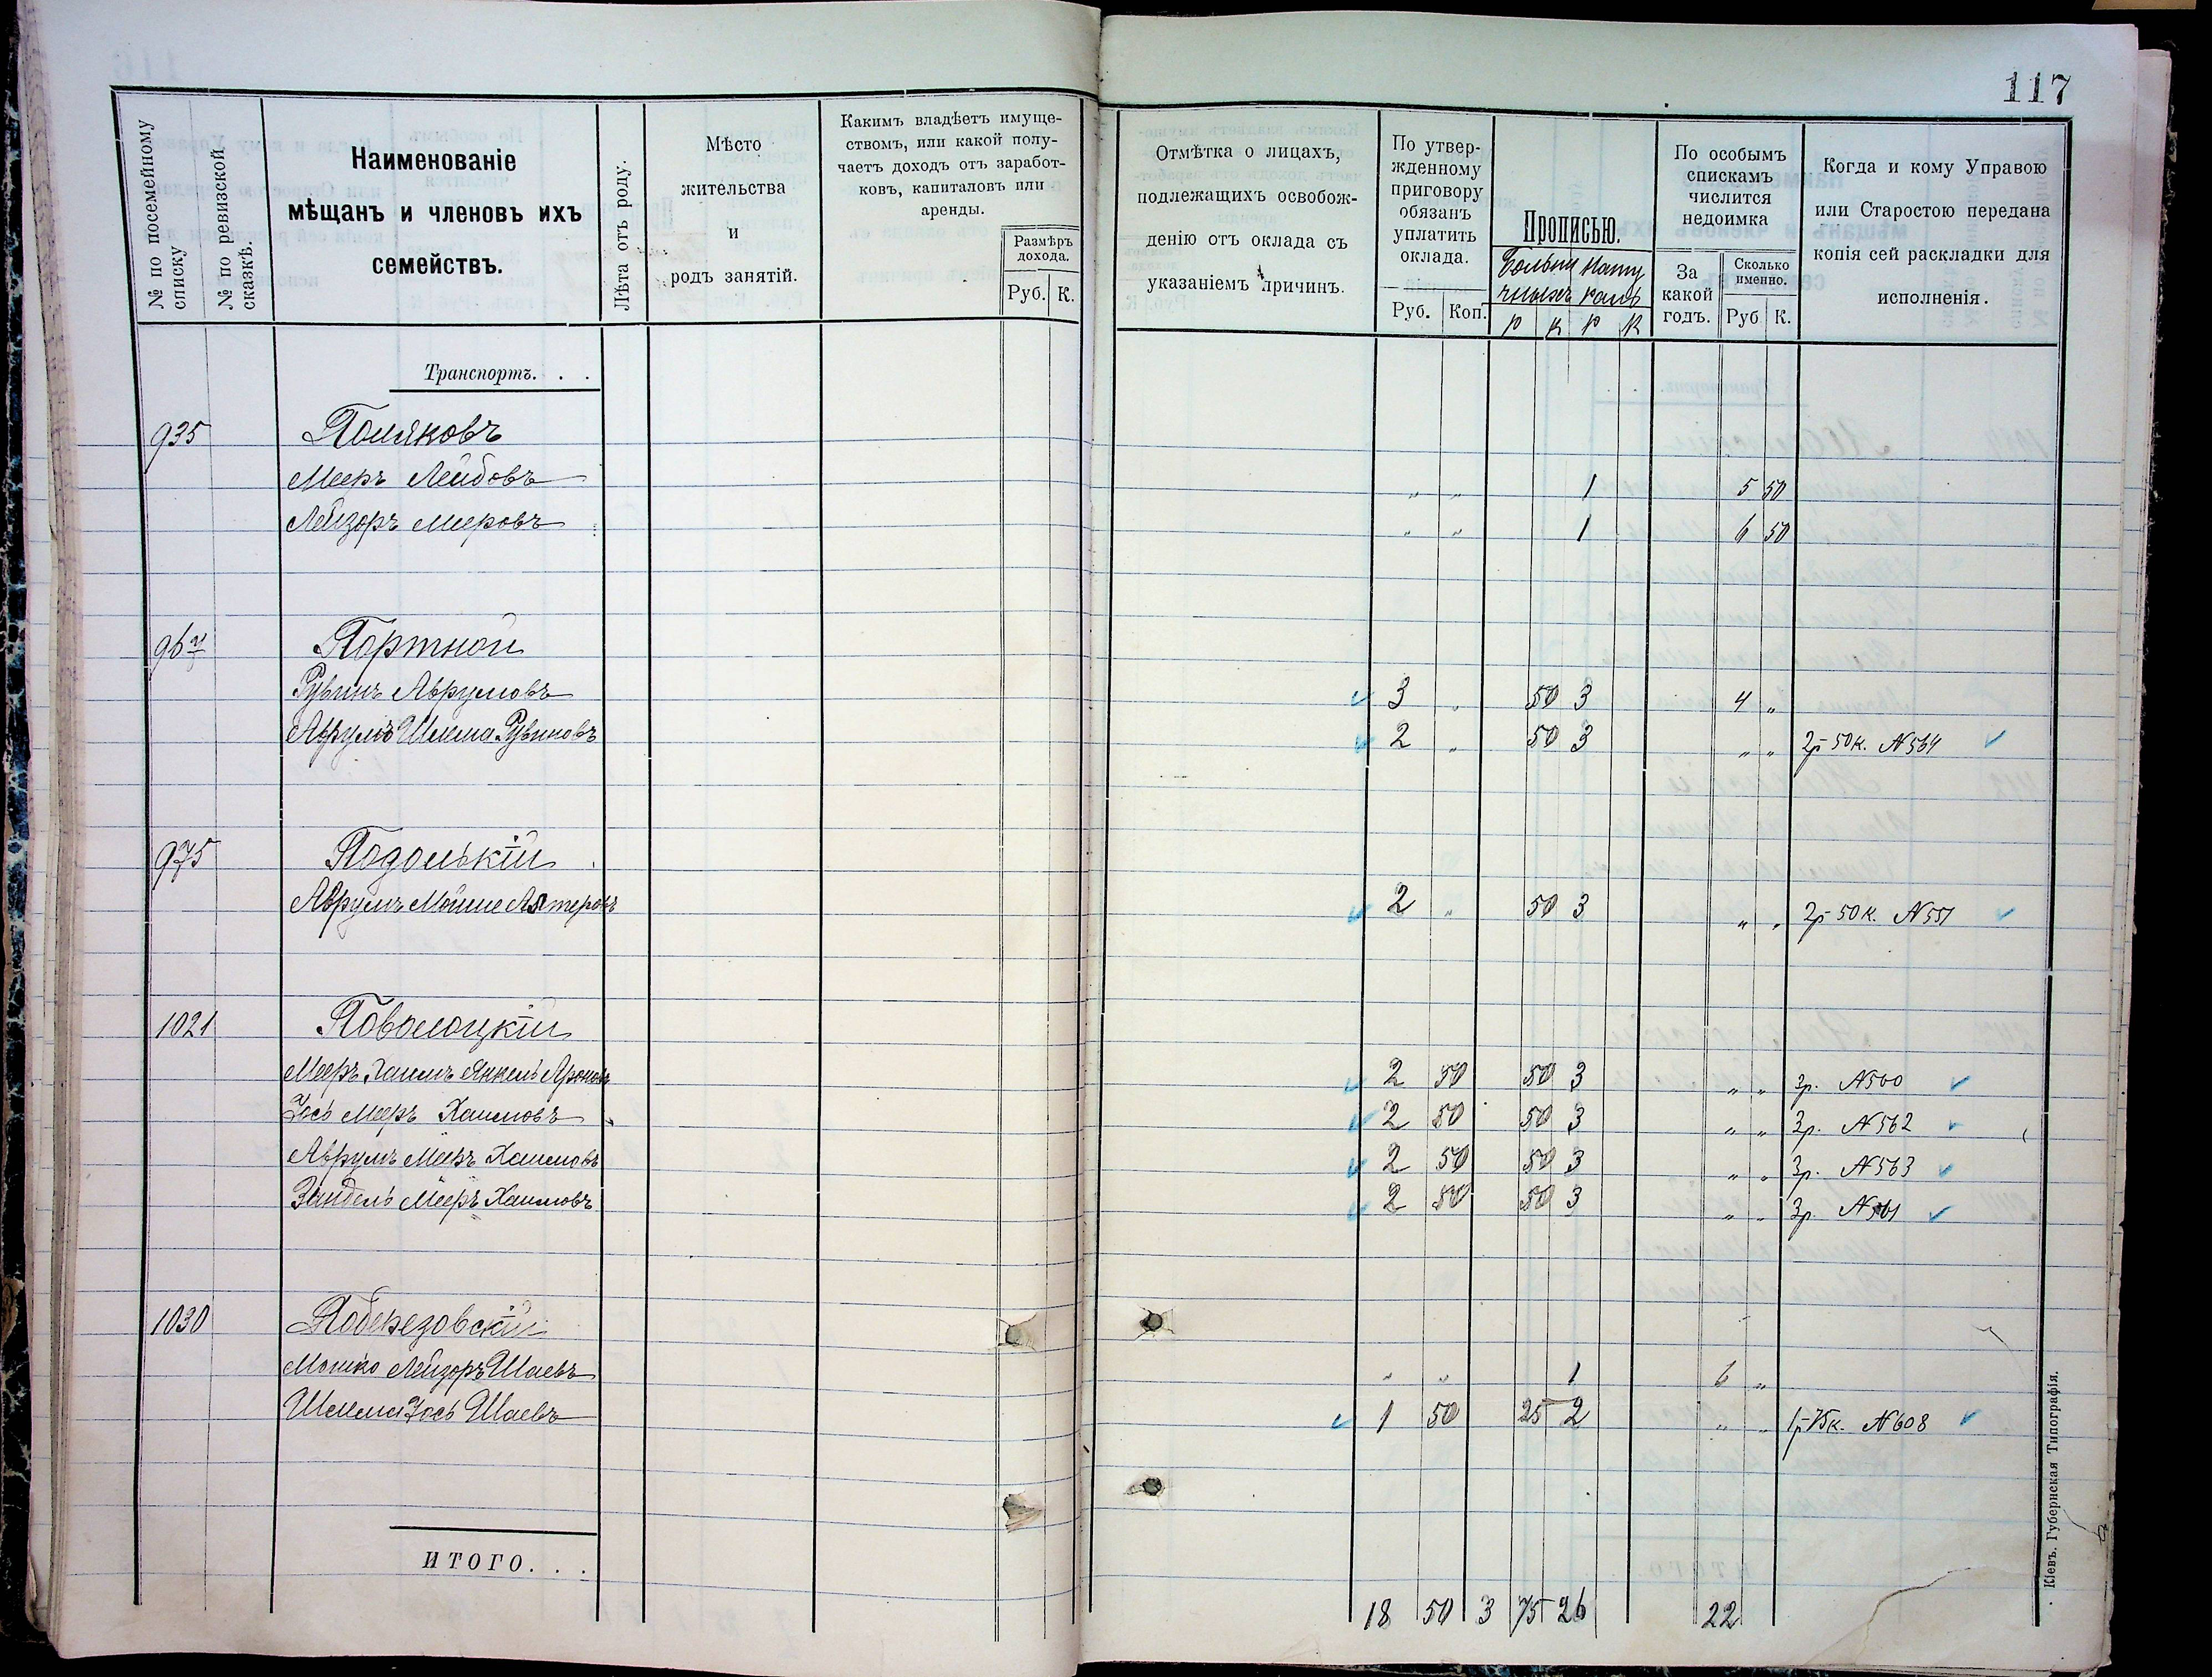 117
№ по посемейному списку
№ по ревизской сказкѣ.
Наименованіе
мѣщанъ и членовъ ихъ
семействъ.
Лѣта отъ роду.
Мѣсто
жительства
и
родъ занятій.
Какимъ владѣетъ имуще-
ствомъ, или какой полу-
чаетъ доходъ отъ заработ-
ковъ, капиталовъ или
аренды.
Размѣръ
дохода.
Руб. К.
Отмѣтка о лицахъ,
подлежащихъ освобож-
денію отъ оклада съ
указаніемъ причинъ.
По утвер-
жденному
приговору
обязанъ
уплатить
оклада.
Руб. Коп.
Прописью.
Больни Нату
чныхъ
р к р к
По особымъ
спискамъ
числится
недоимка
За
какой
годъ.
Сколько
именно.
Руб К.
Когда и кому Управою
или Старостою передана
копія сей раскладки для
исполненія.
Транспортъ. . .
935 Поляковъ
Мееръ Лейбовъ " " 1 5 50
Лейзоръ Мееровъ " " 1 6 50
967 Портной
Рувинъ Аврумовъ 3 " 50 3 4 "
Аврумъ Шлема Рувиновъ 2 " 50 3 " " 2р 50к. N564
975 Подольскій
Аврумъ Мойше Алтеровъ 2 " 50 3 " " 2р 50к. N551
1021 Поволоцкій
Мееръ Хаимъ Янкель Ароновъ 2 50 50 3 " " 3р. N560
Іось Мееръ Хаимовъ 2 50 50 3 " " 3р. N562
Аврумъ Мееръ Хаимовъ 2 50 50 3 " " 3р. N563
Зиндель Мееръ Хаимовъ 2 50 50 3 " " 3р. N561
1030 Поберезовскій
Мошко Лейзоръ Шаевъ " " 1 6 "
Шлема Іось Шаевъ 1 50 25 2 " " 1р 75к. N608
ИТОГО. . .
18 50 3 75 26 22
Кіевъ. Губернская Типографія.